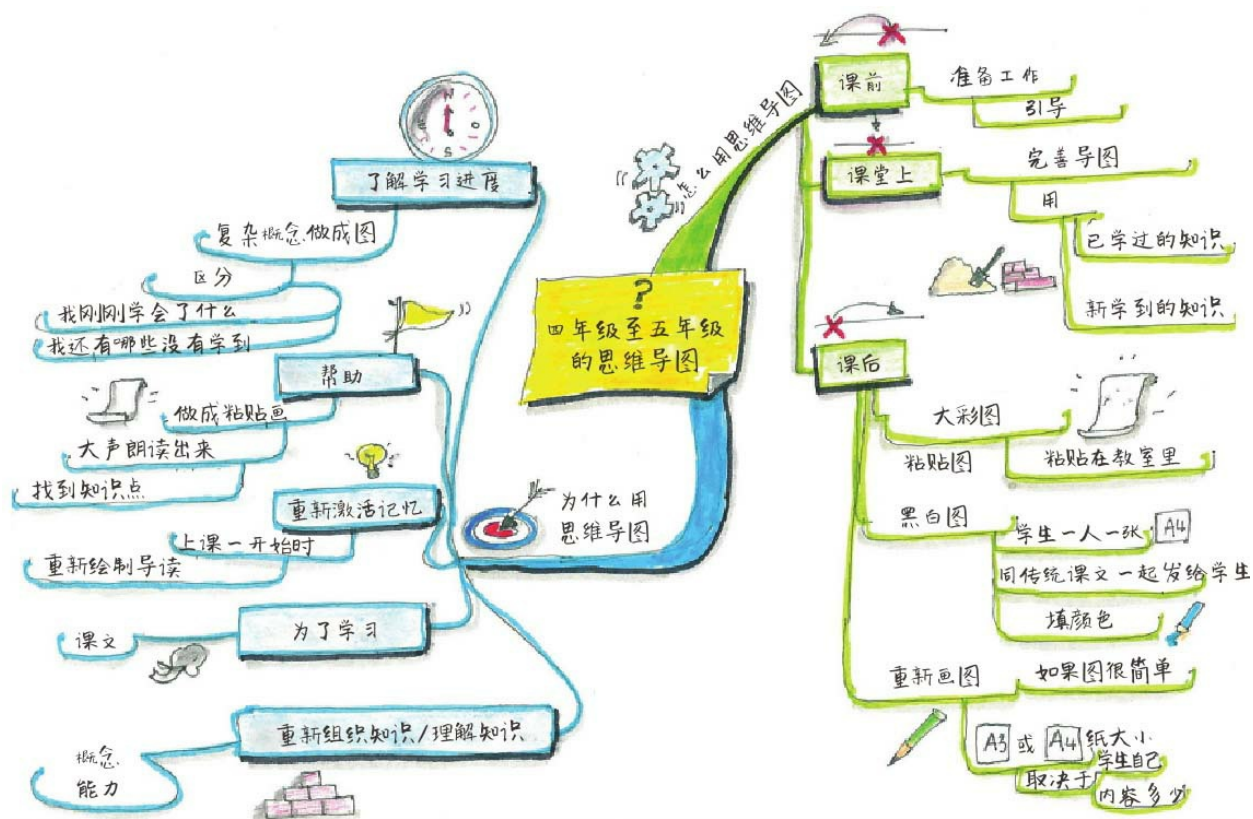 ?
四年级至五年级
的思维导图
怎么用思维导图
课前
准备工作
引导
课堂上
完善导图
用
已学过的知识
新学到的知识
课后
大彩图
粘贴图
粘贴在教室里
黑白图
学生一人一张 A4
同传统课文一起发给学生
填颜色
重新画图
如果图很简单
A3 或 A4 纸大小
取决于
学生自己
内容多少
为什么用
思维导图
了解学习进度
复杂概念做成图
区分
我刚刚学会了什么
我还有哪些没有学到
帮助
做成粘贴画
大声朗读出来
找到知识点
重新激活记忆
上课一开始时
重新绘制导读
为了学习
课文
重新组织知识/理解知识
概念
能力